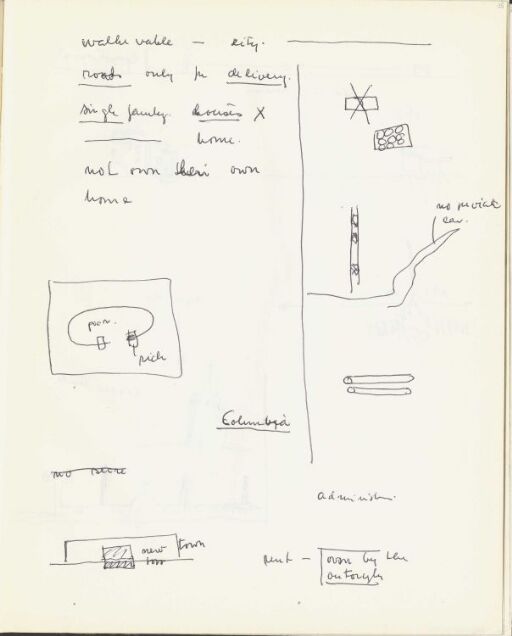 walkable — city.
roads only for delivery.
single family houses X
home.
not own their own
home
no private
car.
poor.
rich
Columbia
no more
administr.
new town
town
rent — own by the